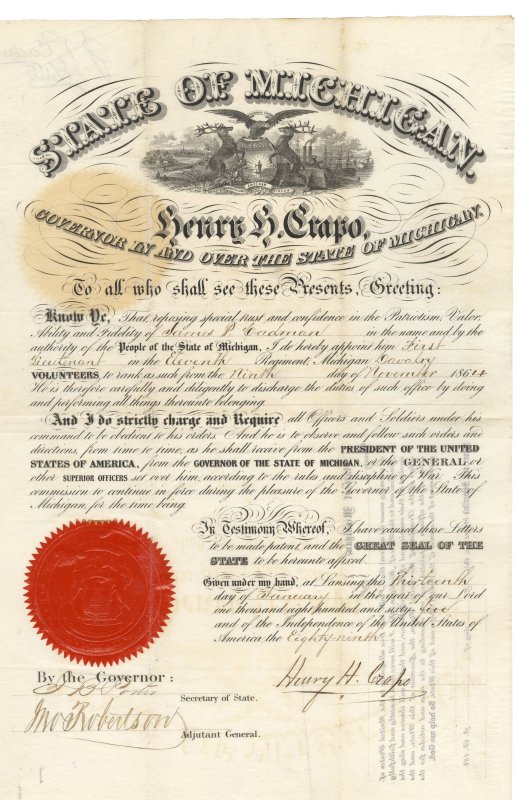 STATE OF MICHIGAN.
Henry H. Crapo,
GOVERNOR IN AND OVER THE STATE OF MICHIGAN.
To all who shall see these Presents, Greeting:
Know Ye, That, reposing special trust and confidence in the Patriotism, Valor,
Ability and Fidelity of James P. Cadman in the name and by the
authority of the People of the State of Michigan, I do hereby appoint him First
Lieutenant in the Eleventh Regiment, Michigan Cavalry
VOLUNTEERS, to rank as such from the Ninth day of November 1864
He is therefore carefully and diligently to discharge the duties of such office by doing
and performing all things thereunto belonging.
And I do strictly charge and Require all Officers and Soldiers under his
command to be obedient to his orders. And he is to observe and follow such orders and
directions, from time to time, as he shall receive from the PRESIDENT OF THE UNITED
STATES OF AMERICA, from the GOVERNOR OF THE STATE OF MICHIGAN, or the GENERAL or
other SUPERIOR OFFICERS set over him, according to the rules and discipline of War. This
commission to continue in force during the pleasure of the Governor of the State of
Michigan for the time being.
In Testimony Whereof, I have caused these Letters
to be made patent, and the GREAT SEAL OF THE
STATE to be hereunto affixed.
Given under my hand, at Lansing this thirteenth
day of January in the year of our Lord
one thousand eight hundred and sixty-five
and of the Independence of the United States of
America the Eighty-ninth
By the Governor:
Henry H. Crapo
Secretary of State.
Jno Robertson
Adjutant General.